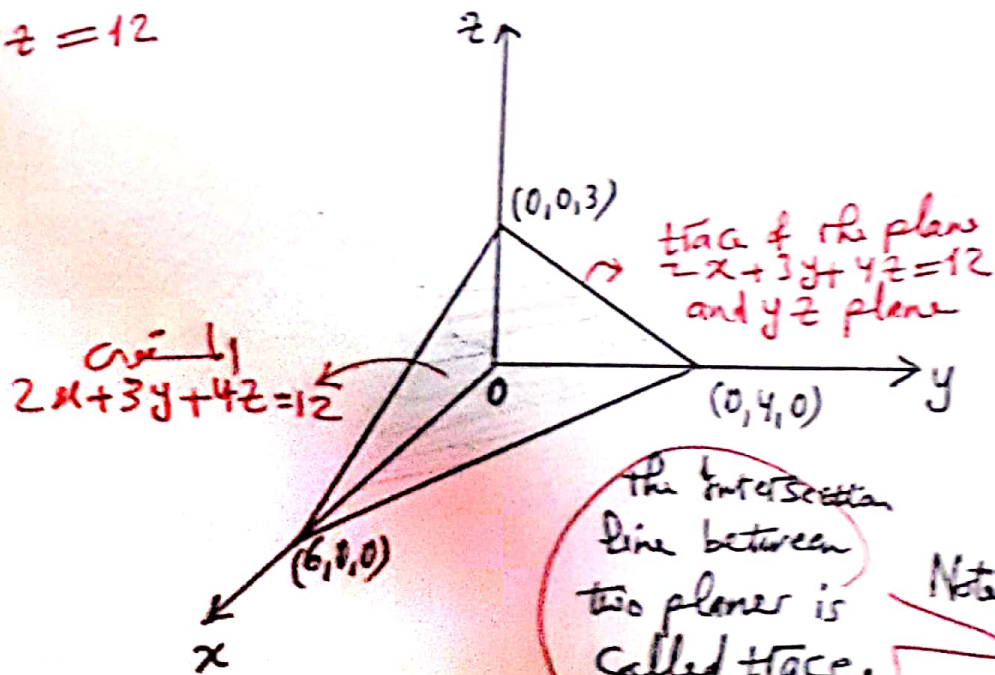 z = 12
z
(0,0,3)
trace of the plane
2x+3y+4z=12
and yz plane
2x+3y+4z=12
0
(0,4,0)
y
(6,0,0)
x
the intersection
line between
two planes is
called trace.
Note